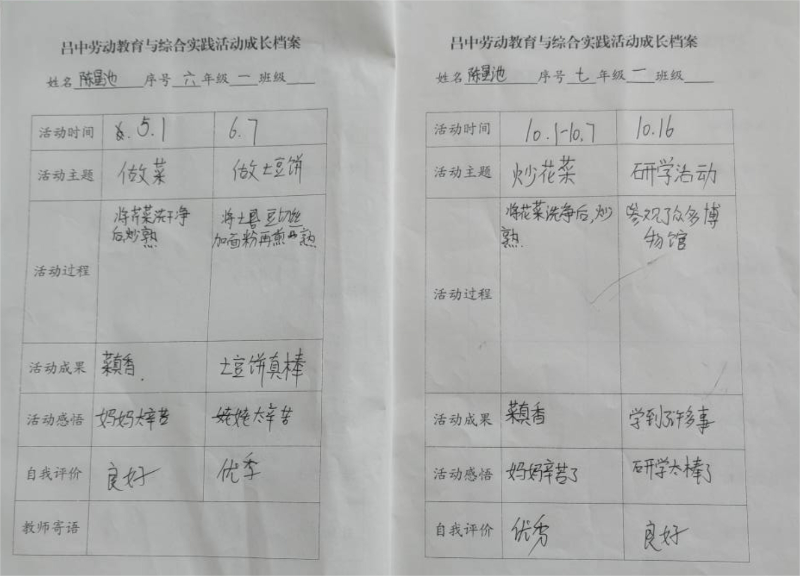 吕中劳动教育与综合实践活动成长档案
姓名 陈星池 序号 六 年级 一 班级
活动时间 5.1 6.7
活动主题 做菜 做土豆饼
活动过程
将芹菜洗干净
后炒熟
将土豆切丝
加面粉再煎熟
活动成果 菜真香. 土豆饼真棒
活动感悟 妈妈太辛苦 太辛苦
自我评价 良好 优秀
教师寄语
吕中劳动教育与综合实践活动成长档案
姓名 陈星池 序号 七 年级 一 班级
活动时间 10.1-10.7 10.16
活动主题 炒花菜 研学活动
活动过程
将花菜洗净后,炒
熟.
参观了众多博
物馆
活动成果 菜真香 学到了许多事
活动感悟 妈妈辛苦了 研学太棒了
自我评价 优秀 良好